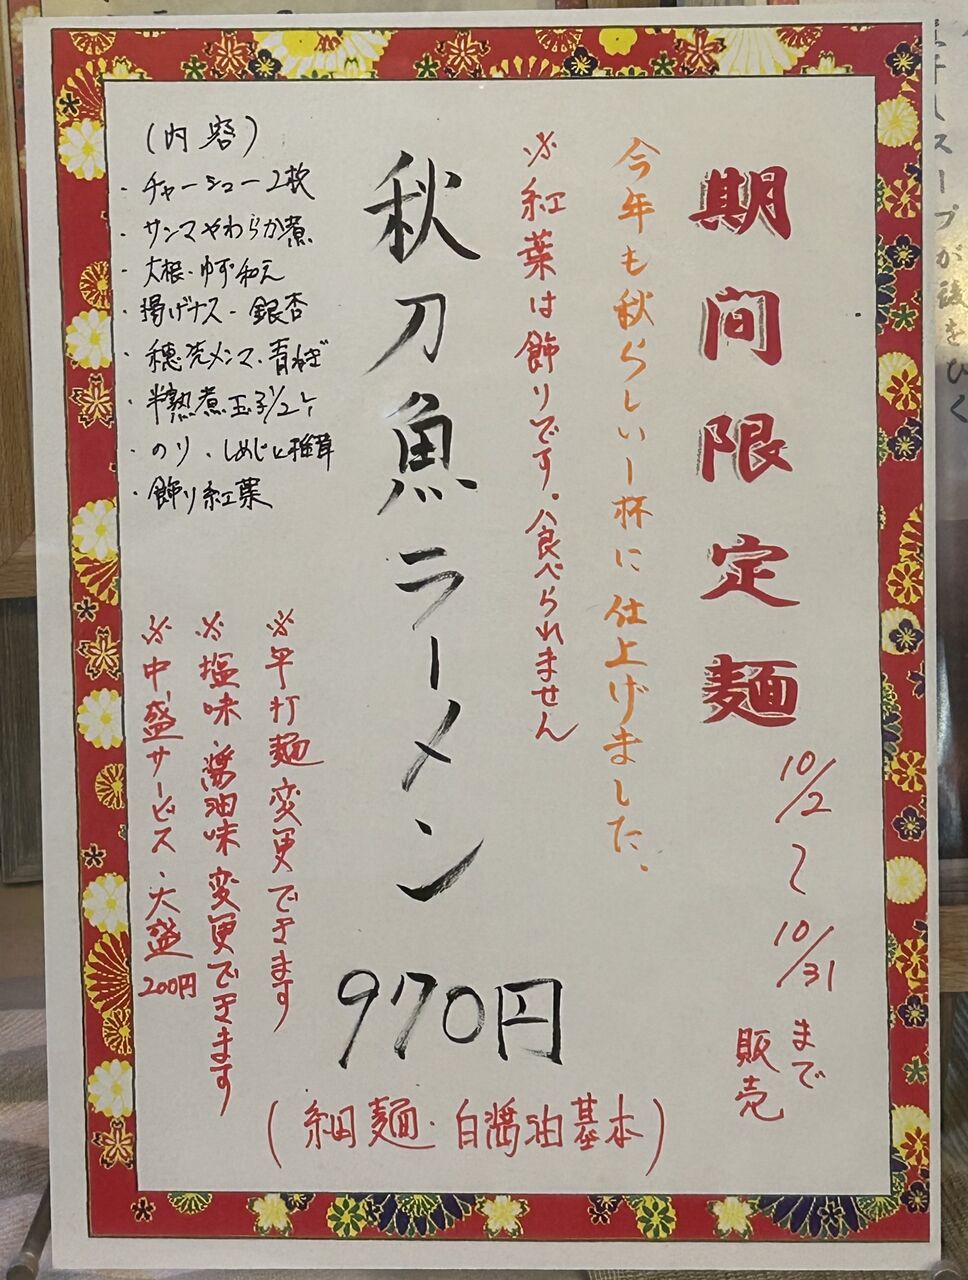 期間限定麺
10/2〜10/31まで
販売
今年も秋らしい一杯に仕上げました。
※紅葉は飾りです。食べられません
秋刀魚ラーメン 970円
(細麺・白醤油基本)
(内容)
・チャーシュー2枚
・サンマやわらか煮
・大根・ゆず和え
・揚げナス・銀杏
・穂先メンマ、青ねぎ
・半熟煮玉子1/2ケ
・のり、しめじと椎茸
・飾り紅葉
※平打麺変更できます
※塩味、醤油味変更できます
※中盛サービス・大盛200円